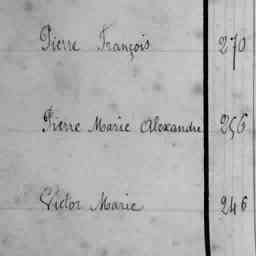 Pierre François 270
Pierre Marie Alexandre 256
Victor Marie 246